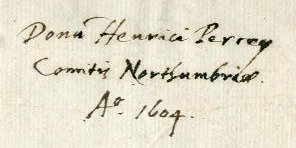 Donũ Henrici Percey
Comitis Northumbriæ.
Aº. 1604.